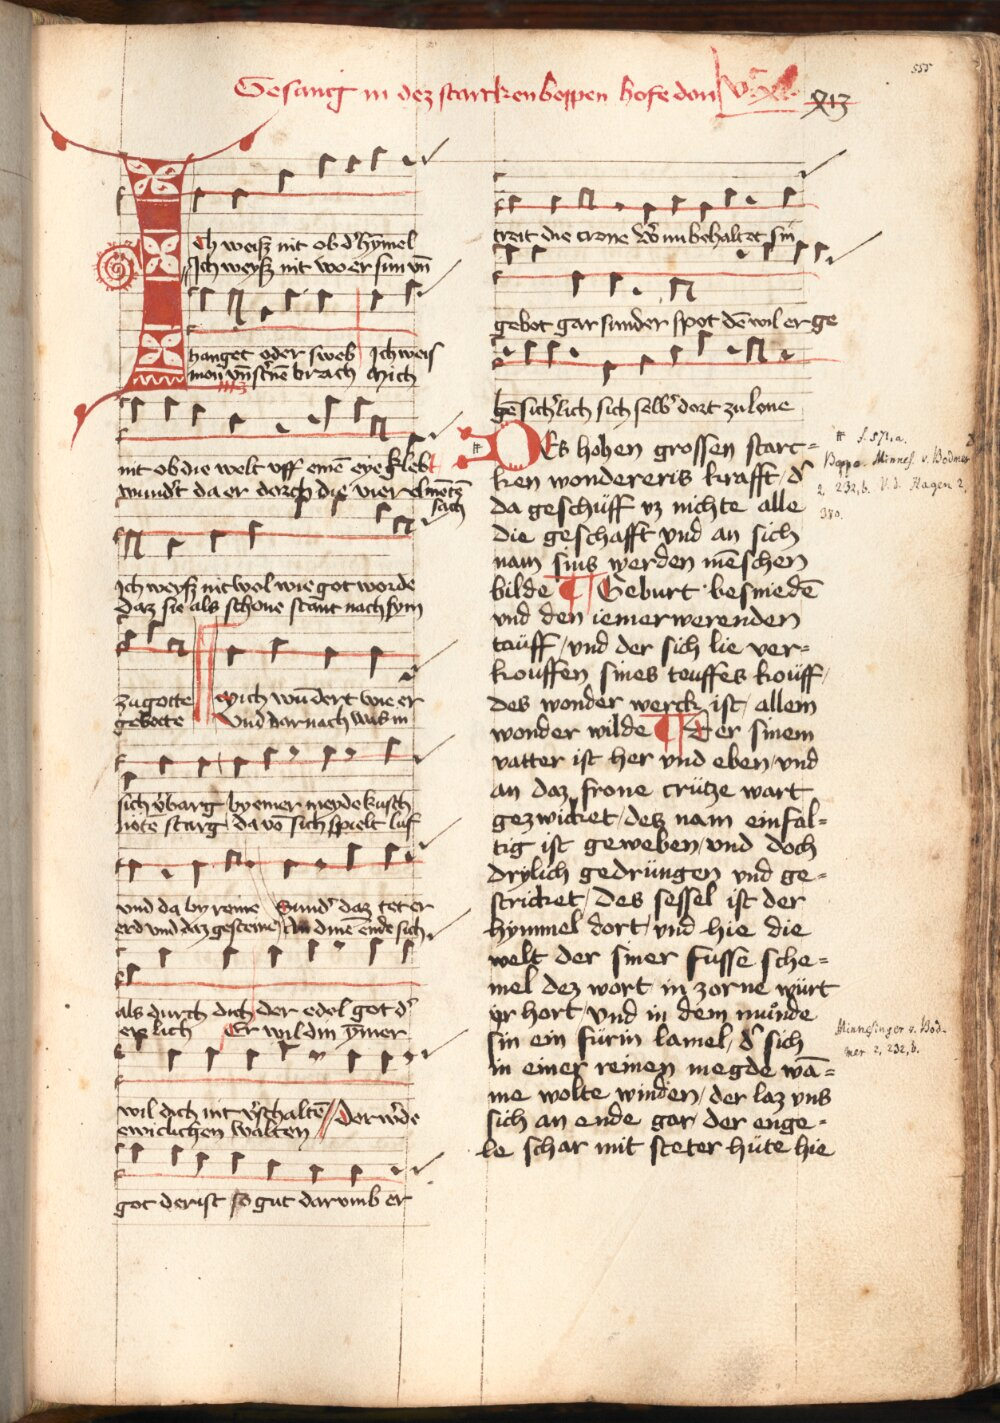 555
Gesang in dez starcken beppen hofe don
Ich weisz nit ob d' hȳmel
Ich weysz nit wo er sūn vn̄
hanget oder sweb Ich weis
mon vn̄ st'nē brach Mich
nit ob die welt vff einē eye kleb
wundt da er dorch die vier elmētz
sach
Ich weysz nit wol wie got worde
daz sie als schone stant nach sym
zu gotte Mich wūdert wie er
gebotte Vnd darnach was in
sich v'barg by einer meyde kusch
noten starg da vō sich spielt luf
vnd da by reine Sund' daz tet er
erd vnd daz gesteine An dinē ende sich
als durch dich der edel got d'
er lich Er wil din ȳmer
wil dich nit v'schaltē Der w'de
ewiclichen walten
got der ist so gut darvmb er
treit die crone Wō im behaltet sin
gebot gar sunder spot dē wil er ge
bē sich'lich sich selb' dort zu lone
DEs hohen grossen starc=
ken wondereris krafft d'
da geschüff vz nichte alle
die geschafft vnd an sich
nam sins werden mēschen
bilde Geburt besniedē
vnd den iemerwerenden
tauff / vnd der sich lie ver=
kouffen sines teuffes kouff /
des wonder werck ist / allem
wonder wilde Der sinem
vatter ist her vnd eben / vnd
an daz frone crütze wart
gezwicket / des nam einfal=
tig ist geweben / vnd doch
drylich gedrüngen vnd ge=
stricket / Des sessel ist der
hymmel dort / vnd hie die
welt der siner fusse sche=
mel dez wort in zorne würt
er hort / vnd in dem munde
sin ein fürin lamel / d' sich
in einer reinen megde wā=
me wolte winden / der laz vns
sich an ende gar / der enge=
le schar mit steter hüte hie
# f. 571, a.
Beppo. Minnes. v. Bodmer
2, 232, b. V. d. Hagen 2,
380.
Minnesinger v. Bod-
mer 2, 232, b.